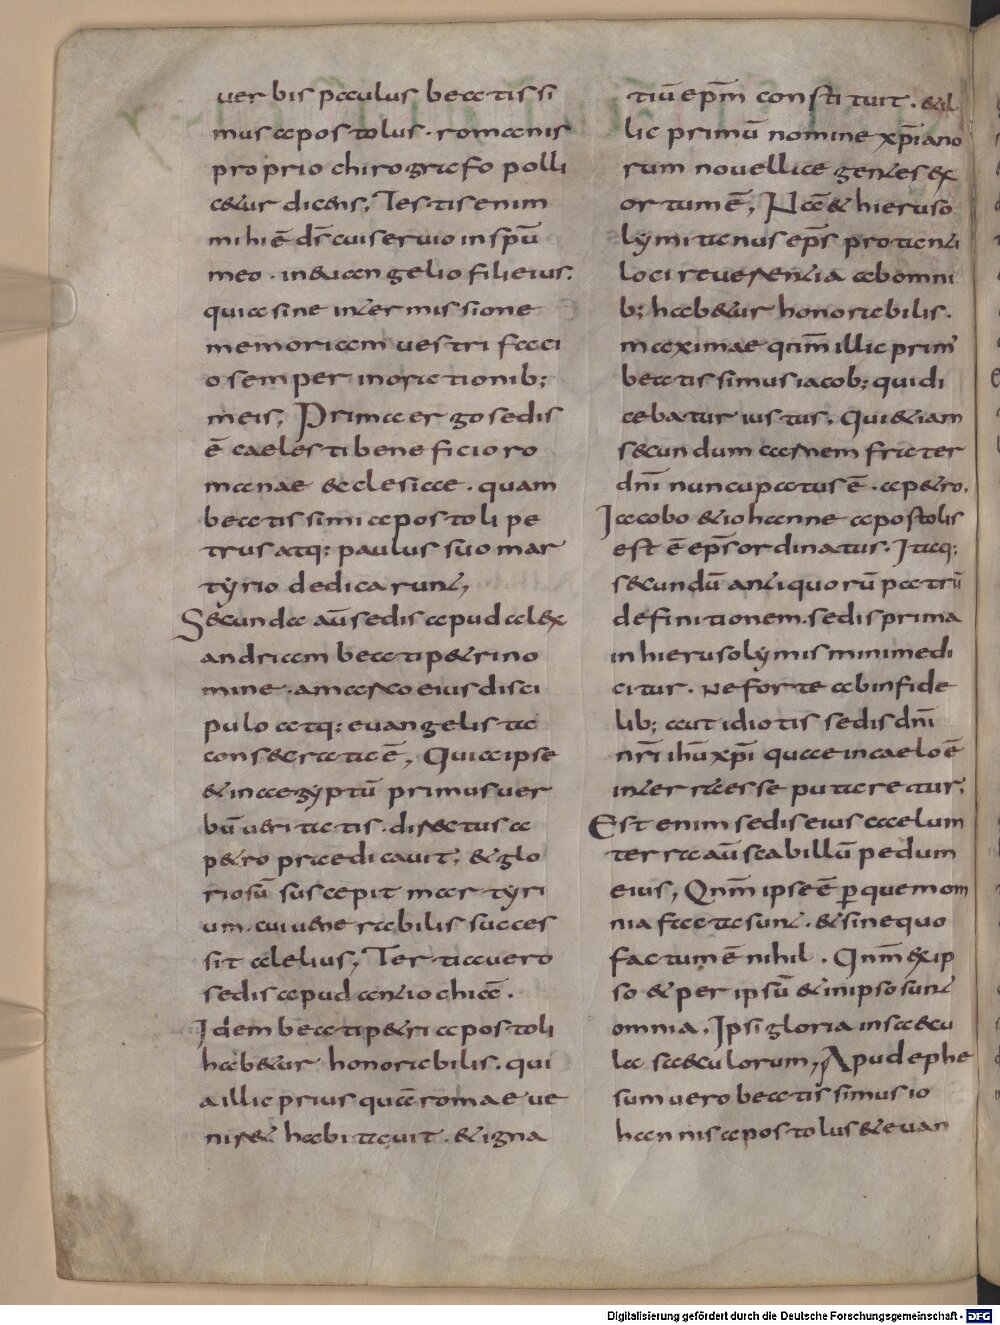 uer bis paulus beatissi
mus apostolus. romanis
proprio chirografo polli
c&ur dic&nis; Testis enim
mihi ē ds̄ cui seruio in spū
meo. in euangelio filii eius.
quia sine intermissione
memoriam uestri faci
o semper in orationib;
meis; Prima ergo sedis
ē caelesti beneficio ro
manae &cclesiae. quam
beatissimi apostoli pe
trus atq: paulus suo mar
tyrio dedicarunt;
Secunda aū sedis apud al&x
andriam beati p&ri no
mine. a marco eius disci
pulo atq: euangelista
cons&crata ē; Quia ipse
& in aegyptū primus uer
bū ueritatis. directus a
p&ro praedicauit; & glo
riosū suscepit martyri
um. cui uenerabilis succes
sit abilius; Tertia uero
sedis apud antiochiā.
Idem beati p&ri apostoli
hab&ur honorabilis. qui
a illic prius quā romae ue
nir& habitauit. & igna
tiū ep̄m constituit. & il
lic primū nomine xp̄iano
rum nouellae gentes &x
ortum ē; Nā & hieruso
lymitanus ep̄s pro tanti
loci reuerentia ab omni
b; hab&ur honorabilis.
maximae qnm̄ illic prim'
beatissimus iacob; qui di
cebatur iustus. Qui & iam
s&cundum carnem frater
dn̄i nuncupatus ē. a p&ro.
Iacobo & iohanne apostolis
est ē ep̄s ordinatus. Itaq;
s&cundū antiquorū patrū
definitionem. sedis prima
in hierusolymis minime di
citur. Ne forte ab infide
lib; aut idiotis sedis dn̄i
nr̄i ihū xp̄i quae in caelo ē
in terra esse putaretur;
Est enim sedis eius caelum
terra aū scabillū pedum
eius; Qnm̄ ipse ē p̱ quem om
nia facta sunt. & sine quo
factum ē nihil. Qnm̄ &x ip
so & per ipsū & in ipso sunt
omnia. Ipsi gloria in saecu
la saeculorum; Apud ephe
sum uero beatissimus io
hannis apostolus & euan
Digitalisierung gefördert durch die Deutsche Forschungsgemeinschaft - DFG